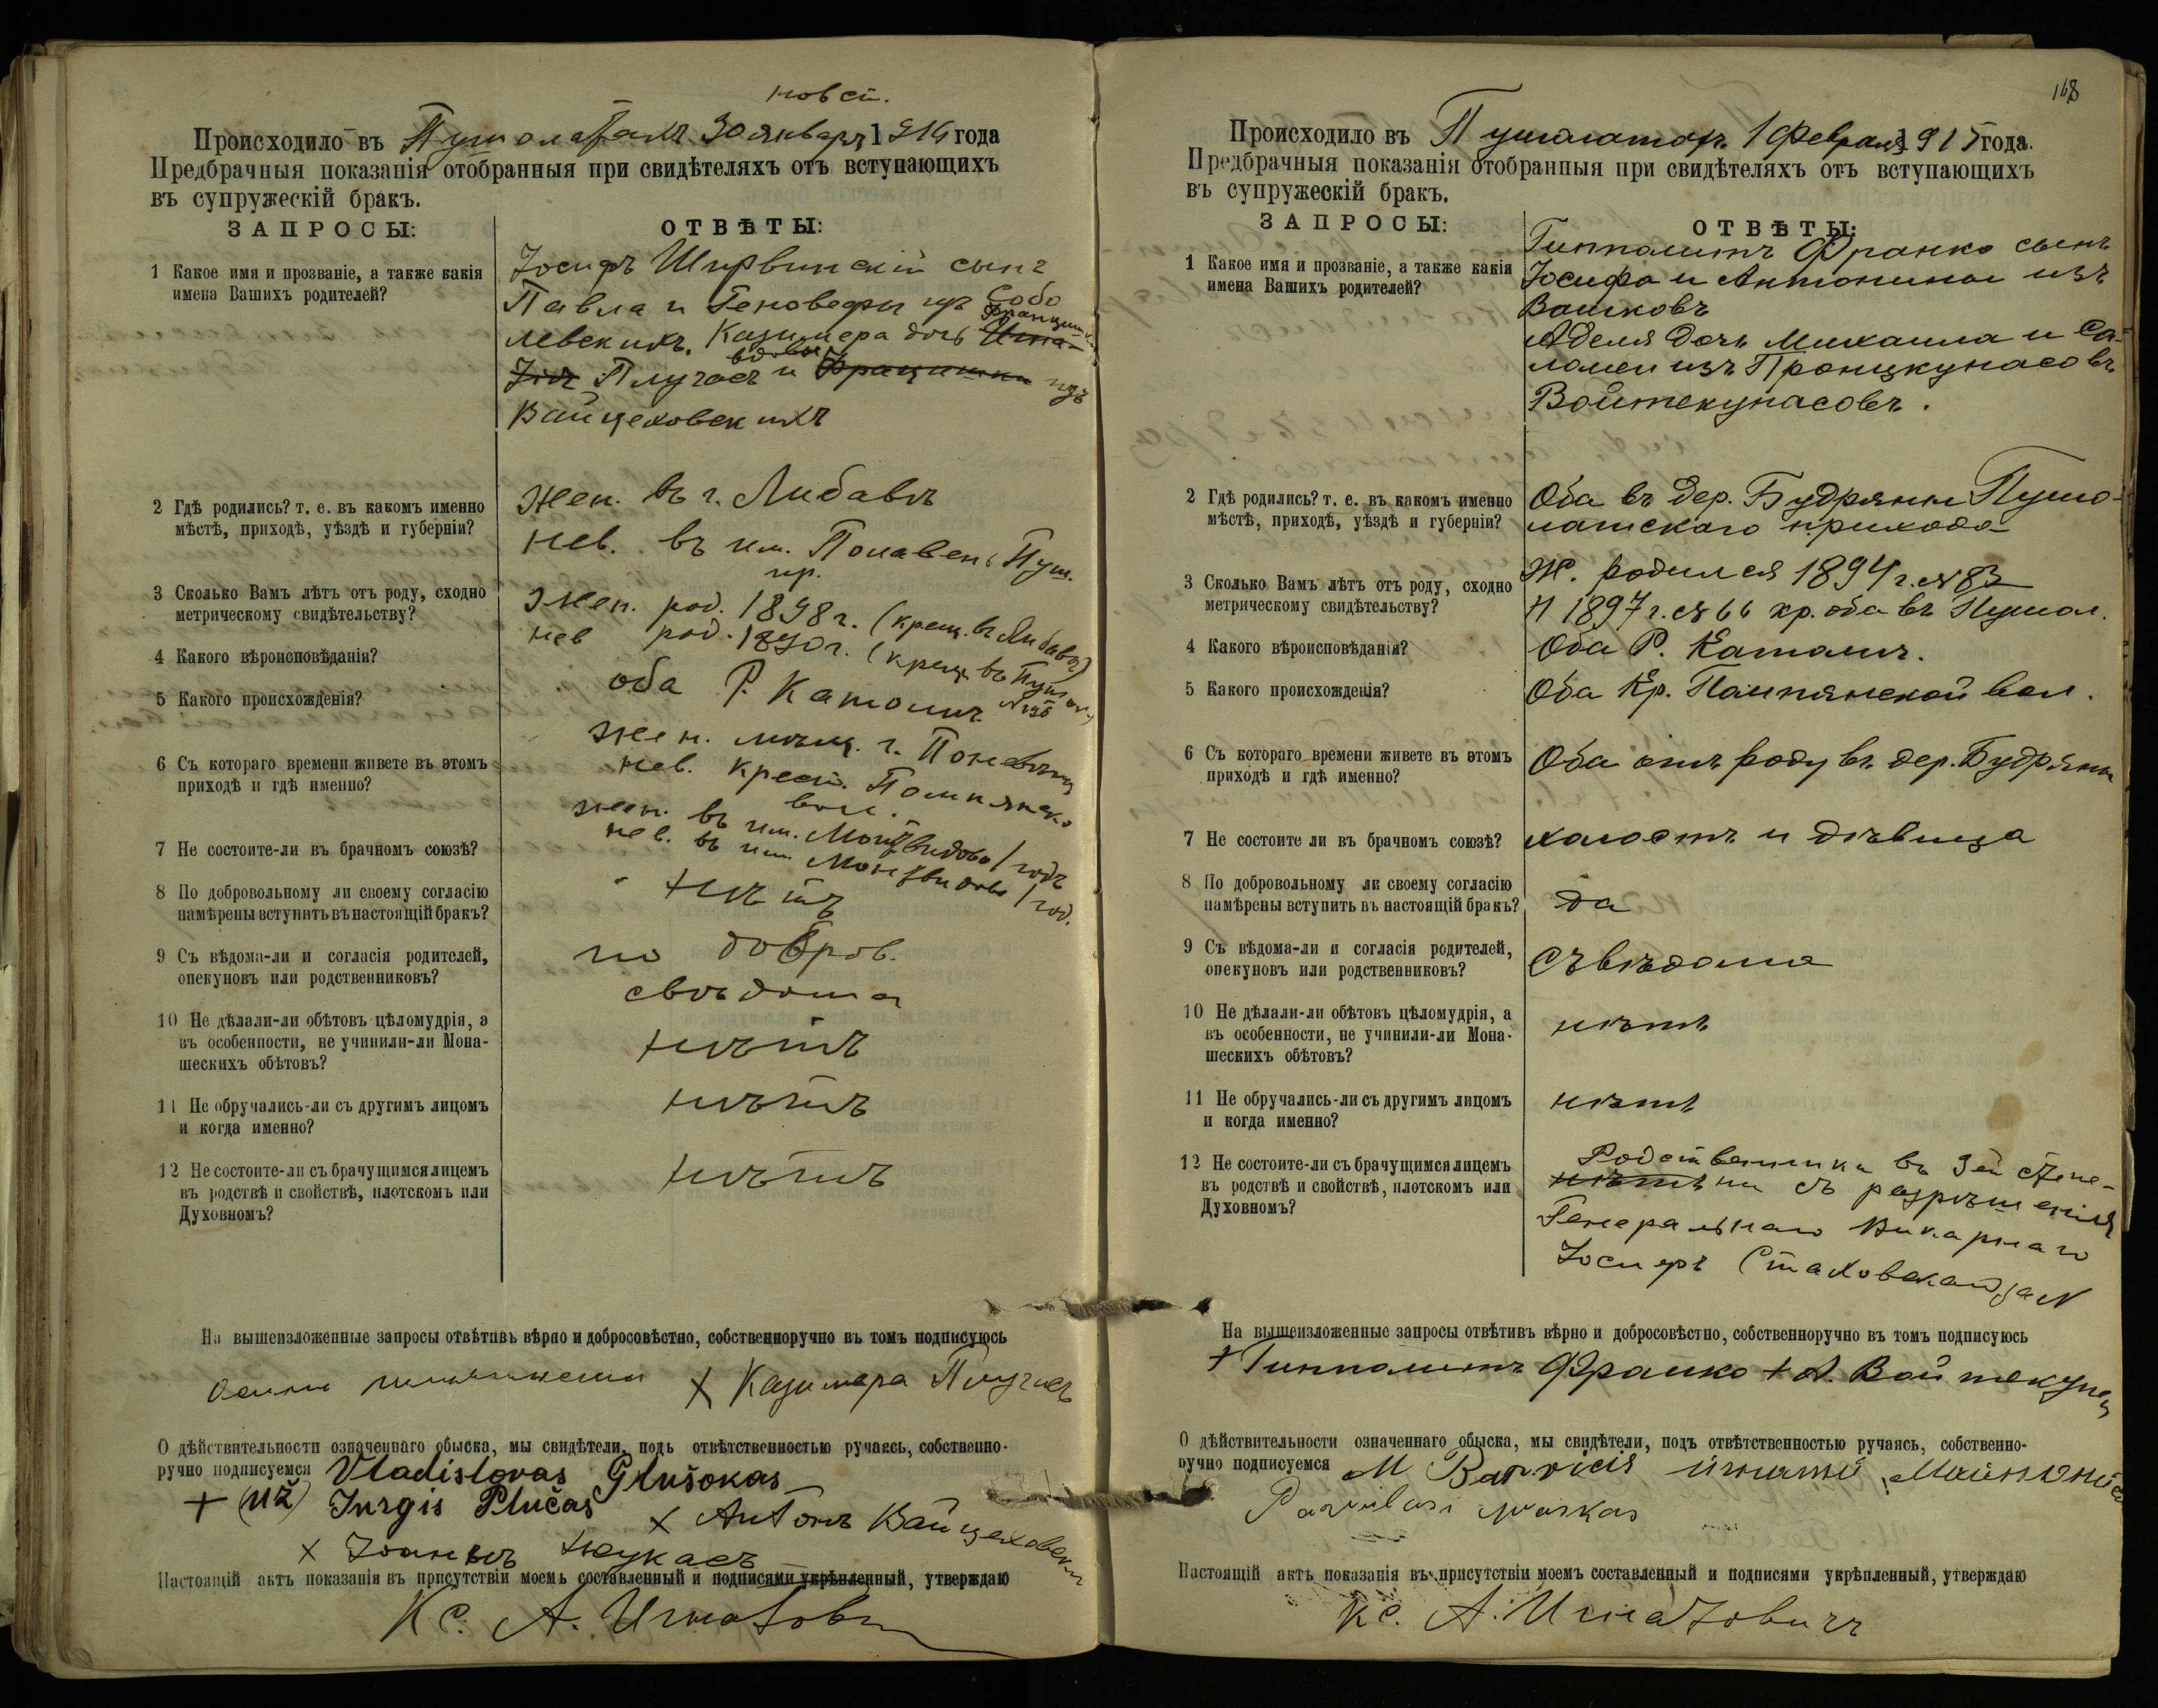 нов ст.
Происходило въ Пушолатахъ 30 января 1914 года
Предбрачныя показанія отобранныя при свидѣтеляхъ отъ вступающихъ
въ супружескій бракъ.
ЗАПРОСЫ: ОТВѢТЫ:
1 Какое имя и прозваніе, а также какія
имена Вашихъ родителей?
Іосифъ Ширвинскій сынъ
Павла и Геновефы изъ Собо
левскихъ. Казимера дочь
Францишки
вдовы
Плучасъ и Францишки изъ
Вайцеховскихъ
2 Гдѣ родились? т. е. въ какомъ именно
мѣстѣ, приходѣ, уѣздѣ и губерніи?
Жен. въ г. Либавѣ
Нев. въ им. Понавень Пуш.
пр.
3 Сколько Вамъ лѣтъ отъ роду, сходно
метрическому свидѣтельству?
Жен. род. 1898 г. (крещ. въ Либавѣ)
нев род. 1890 г. (крещ. въ Пушол.)
4 Какого вѣроисповѣданія?
оба Р. Католич.
5 Какого происхожденія?
жен. мѣщ. г. Поневѣж
нев. крест. Помпянско
вол.
6 Съ котораго времени живете въ этомъ
приходѣ и гдѣ именно?
жен. въ им. Монтвидово 1 годъ
нев. въ им. Монтвидово 1 год.
7 Не состоите-ли въ брачномъ союзѣ?
нѣтъ
8 По добровольному ли своему согласію
намѣрены вступить въ настоящій бракъ?
по добров.
9 Съ вѣдома-ли и согласія родителей,
опекуновъ или родственниковъ?
свѣдома
10 Не дѣлали-ли обѣтовъ цѣломудрія, а
въ особенности, не учинили-ли Мона-
шескихъ обѣтовъ?
нѣтъ
11 Не обручались-ли съ другимъ лицомъ
и когда именно?
нѣтъ
12 Не состоите-ли съ брачущимся лицемъ
въ родствѣ и свойствѣ, плотскомъ или
Духовномъ?
нѣтъ
На вышеизложенные запросы отвѣтивъ вѣрно и добросовѣстно, собственноручно въ томъ подписуюсь
X Казимера Плучасъ
О дѣйствительности означеннаго обыска, мы свидѣтели, подъ отвѣтственностью ручаясь, собственно-
ручно подписуемся Vladislovas Glušokas
+ (už) Jurgis Plučas X Антонъ Вайцеховски
X Іоаннъ Жукасъ
Настоящій актъ показанія въ присутствіи моемъ составленный и подписями укрѣпленный, утверждаю
Кс. А. Игнатови
168
Происходило въ Пушолатахъ 1 февраля 1915 года.
Предбрачныя показанія отобранныя при свидѣтеляхъ отъ вступающихъ
въ супружескій бракъ.
ЗАПРОСЫ: ОТВѢТЫ:
1 Какое имя и прозваніе, а также какія
имена Вашихъ родителей?
Гипполитъ Франко сынъ
Іосифа и Антонины изъ
Вашковъ
Аделя дочь Михаила и Са-
ломеи изъ Пронцкунасовъ
Войтекунасовъ.
2 Гдѣ родились? т. е. въ какомъ именно
мѣстѣ, приходѣ, уѣздѣ и губерніи?
Оба въ дер. Будряны Пушо-
латскаго прихода
3 Сколько Вамъ лѣтъ отъ роду, сходно
метрическому свидѣтельству?
Ж. родился 1894 г. № 83
Н 1897 г. № 66 кр. оба въ Пушол.
4 Какого вѣроисповѣданія?
Оба Р. Католич.
5 Какого происхожденія?
Оба Кр. Помпянской вол.
6 Съ котораго времени живете въ этомъ
приходѣ и гдѣ именно?
Оба отъ роду въ дер. Будряны
7 Не состоите ли въ брачномъ союзѣ?
холостъ и дѣвица
8 По добровольному ли своему согласію
намѣрены вступить въ настоящій бракъ?
да
9 Съ вѣдома-ли и согласія родителей,
опекуновъ или родственниковъ?
Съ вѣдома
10 Не дѣлали-ли обѣтовъ цѣломудрія, а
въ особенности, не учинили-ли Мона-
шескихъ обѣтовъ?
нѣтъ
11 Не обручались-ли съ другимъ лицомъ
и когда именно?
нѣтъ
12 Не состоите-ли съ брачущимся лицемъ
въ родствѣ и свойствѣ, плотскомъ или
Духовномъ?
Родственники въ 3ей степе-
нѣтъ ни съ разрѣшенія
Генеральнаго Викарнаго
Іосифъ Стаховской за N
На вышеизложенные запросы отвѣтивъ вѣрно и добросовѣстно, собственноручно въ томъ подписуюсь
+ Гипполитъ Франко + А. Войтекунасъ
О дѣйствительности означеннаго обыска, мы свидѣтели, подъ отвѣтственностью ручаясь, собственно-
ручно подписуемся М
Настоящій актъ показанія въ присутствіи моемъ составленный и подписями укрѣпленный, утверждаю
Кс. А. Игнатовичъ